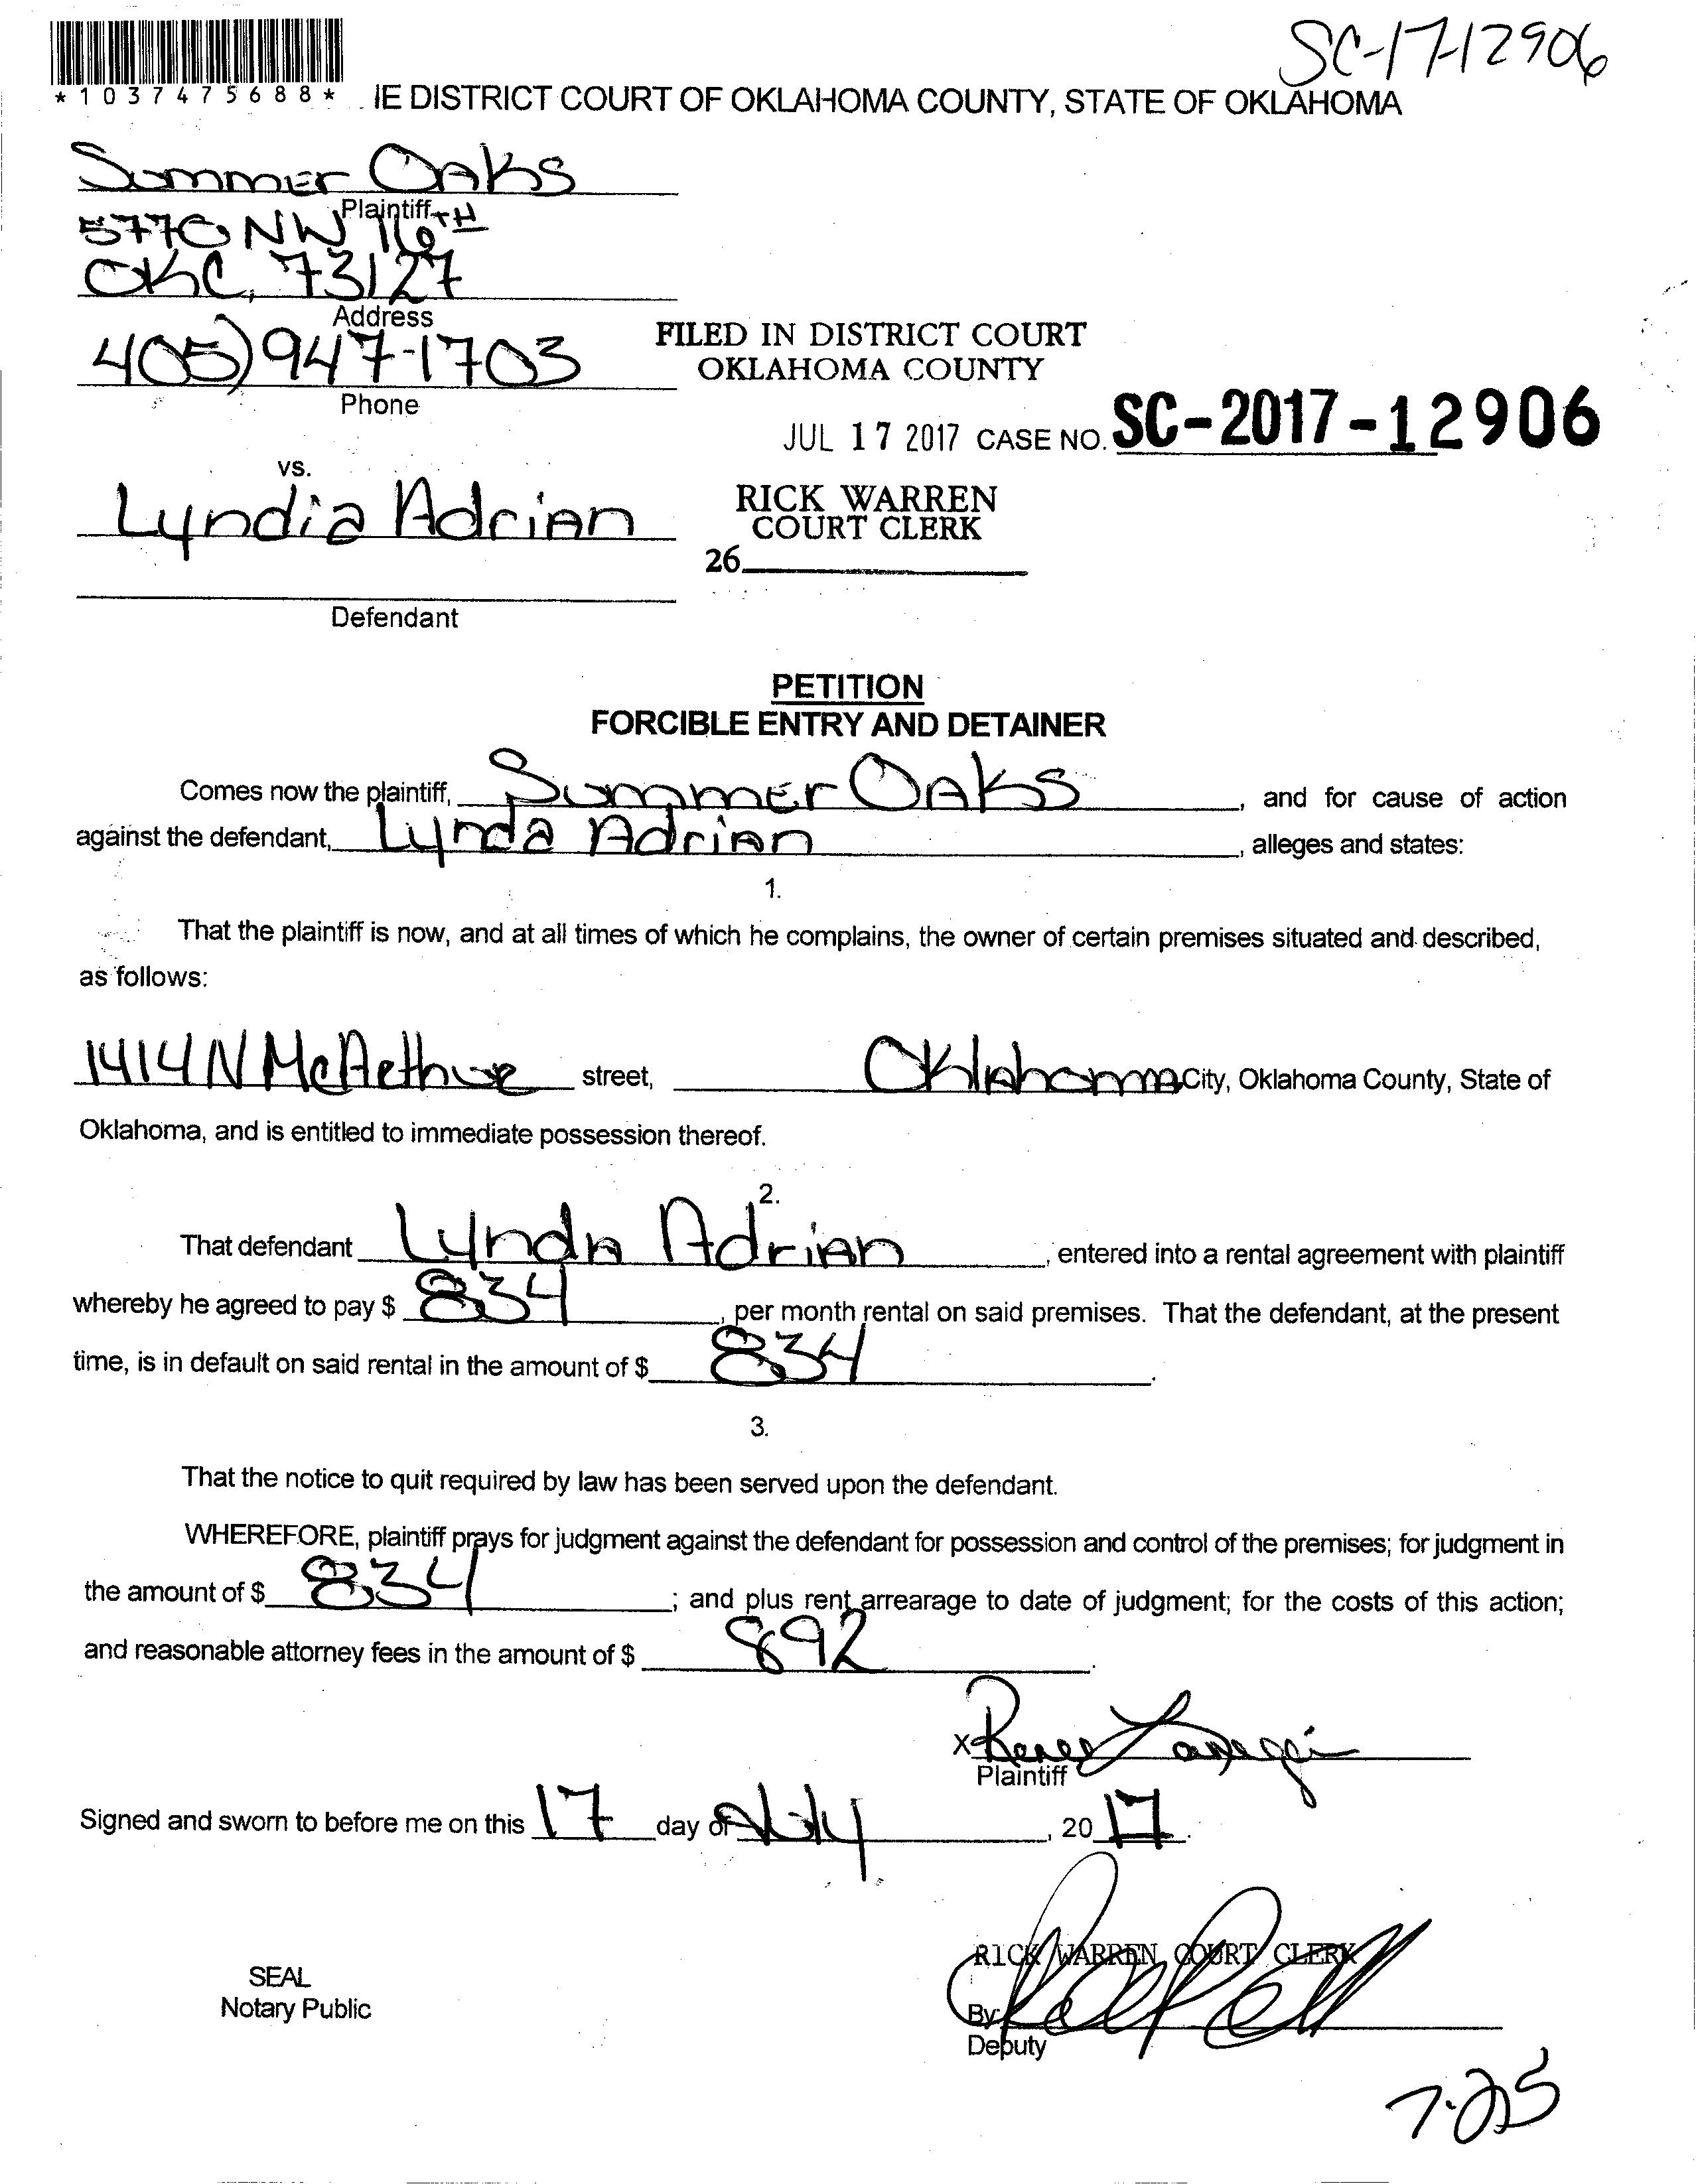 SC-17-12906
*1037475688* IE DISTRICT COURT OF OKLAHOMA COUNTY, STATE OF OKLAHOMA
Summer Oaks
Plaintiff
5770 NW 16TH
OKC, 73127
Address
405) 947-1703
Phone
FILED IN DISTRICT COURT
OKLAHOMA COUNTY
JUL 17 2017 CASE NO. SC-2017-12906
vs.
Lyndia Adrian
RICK WARREN
COURT CLERK
26
Defendant
PETITION
FORCIBLE ENTRY AND DETAINER
Comes now the plaintiff, Summer Oaks, and for cause of action
against the defendant, Lynda Adrian, alleges and states:
1.
That the plaintiff is now, and at all times of which he complains, the owner of certain premises situated and described,
as follows:
1414 N McArthur street, Oklahoma City, Oklahoma County, State of
Oklahoma, and is entitled to immediate possession thereof.
2.
That defendant Lynda Adrian, entered into a rental agreement with plaintiff
whereby he agreed to pay $ 834, per month rental on said premises. That the defendant, at the present
time, is in default on said rental in the amount of $ 834.
3.
That the notice to quit required by law has been served upon the defendant.
WHEREFORE, plaintiff prays for judgment against the defendant for possession and control of the premises; for judgment in
the amount of $ 834; and plus rent arrearage to date of judgment; for the costs of this action;
and reasonable attorney fees in the amount of $ 892.
X Renee
Plaintiff
Signed and sworn to before me on this 17 day of July, 2017.
RICK WARREN COURT CLERK
SEAL
Notary Public
By:
Deputy
7-25